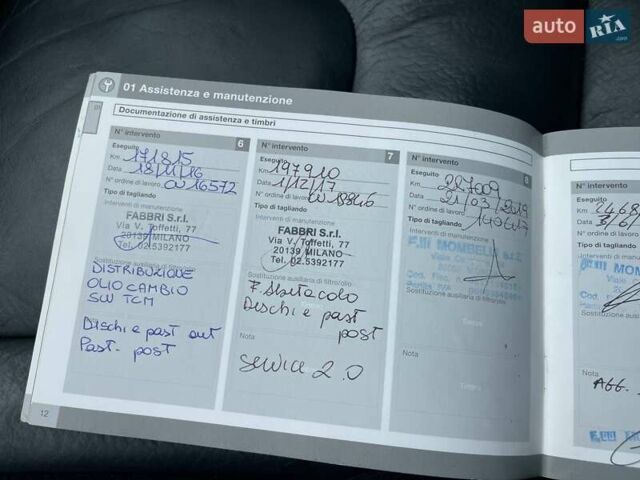 auto RIA .com
01 Assistenza e manutenzione
Documentazione di assistenza e timbri
N° intervento 6
Eseguito
Km 171815
Data 18/11/16
N° ordine di lavoro
Tipo di tagliando
Interventi di manutenzione
FABBRI S.r.l.
Via V. Toffetti, 77
20139 MILANO
Tel. 02.5392177
Sostituzione ausiliaria di filtro/olio
DISTRIBUZIONE
OLIO CAMBIO
SW TCM
Dischi e past ant
Past. post
12
N° intervento 7
Eseguito
Km 197910
Data 1/12/17
N° ordine di lavoro
Tipo di tagliando
Interventi di manutenzione
FABBRI S.r.l.
Via V. Toffetti, 77
20139 MILANO
Tel. 02.5392177
Sostituzione ausiliaria di filtro/olio
F Abitacolo
Dischi e past
post
Nota
Service 2.0
N° intervento 8
Eseguito
Km 227009
Data 21/03/2019
N° ordine di lavoro
Tipo di tagliando
Interventi di manutenzione
F.lli MOMBELLI
Sostituzione ausiliaria di filtro/olio
Nota
Timbro
N° intervento
Eseguito
Km
Data
N° ordine di
Tipo di tagliando
Interventi di
MOMB
Viale
Cod.
Sostituzione
Nota
AGG.